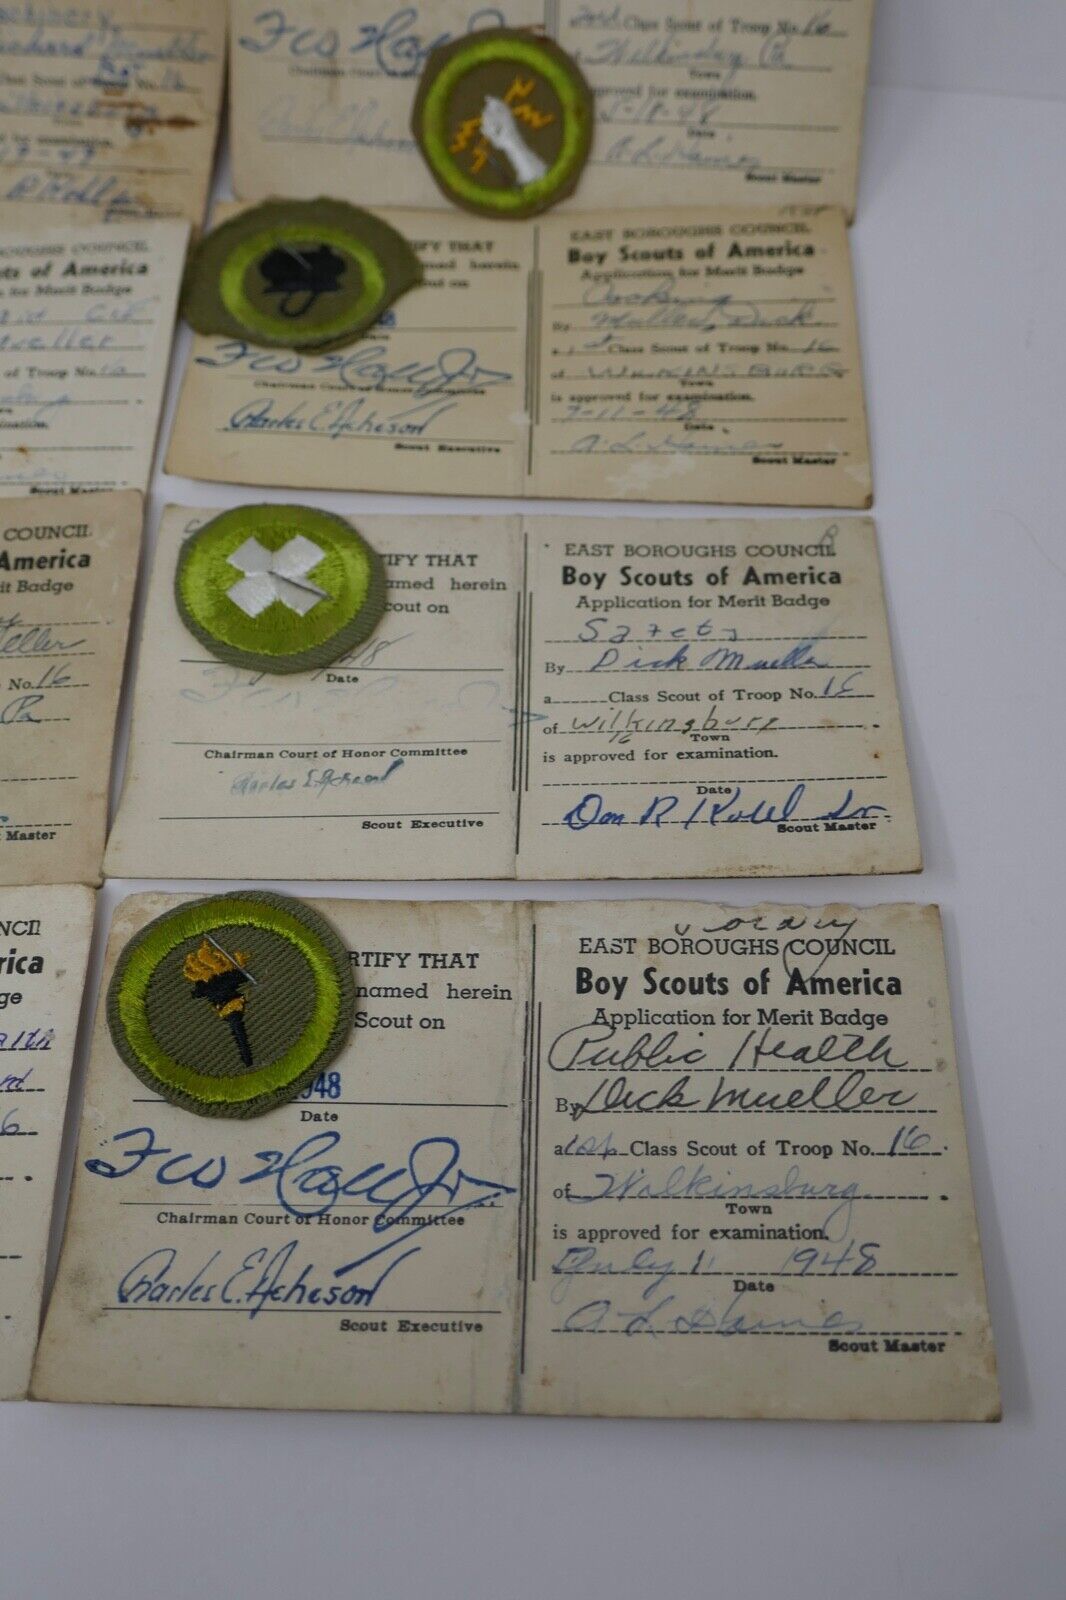 Class Scout of Troop No. 16
Chairman Court
Town
approved for examination.
5-18-48
Date
A. L. Haines
Scout Master
Class Scout of No. 16
COUNCIL
of America
for Merit Badge
of Troop No. 16
Scout Master
RTIFY THAT
named herein
Scout on
48
F W Hall Jr
Chairman Court of Honor Committee
Charles E. Acheson
Scout Executive
EAST BOROUGHS COUNCIL
Boy Scouts of America
Application for Merit Badge
Cooking
By Mueller, Dick
a 1st Class Scout of Troop No. 16
of WILKINSBURG
Town
is approved for examination.
7-11-48
Date
A. L. Haines
Scout Master
COUNCIL
America
it Badge
eller
No. 16
Pa
Master
TIFY THAT
named herein
Scout on
48
Date
Chairman Court of Honor Committee
Charles E. Acheson
Scout Executive
R
EAST BOROUGHS COUNCIL
Boy Scouts of America
Application for Merit Badge
Safety
By Dick Mueller
a Class Scout of Troop No. 16
of Wilkingsburg
16 Town
is approved for examination.
Date
Scout Master
NCIL
rica
ge
6
RTIFY THAT
named herein
Scout on
1948
Date
F W Hall Jr
Chairman Court of Honor Committee
Charles E. Acheson
Scout Executive
EAST BOROUGHS COUNCIL
Boy Scouts of America
Application for Merit Badge
Public Health
By Dick Mueller
a 1st Class Scout of Troop No. 16
of Wilkinsburg
Town
is approved for examination.
July 11 1948
Date
A. L. Haines
Scout Master